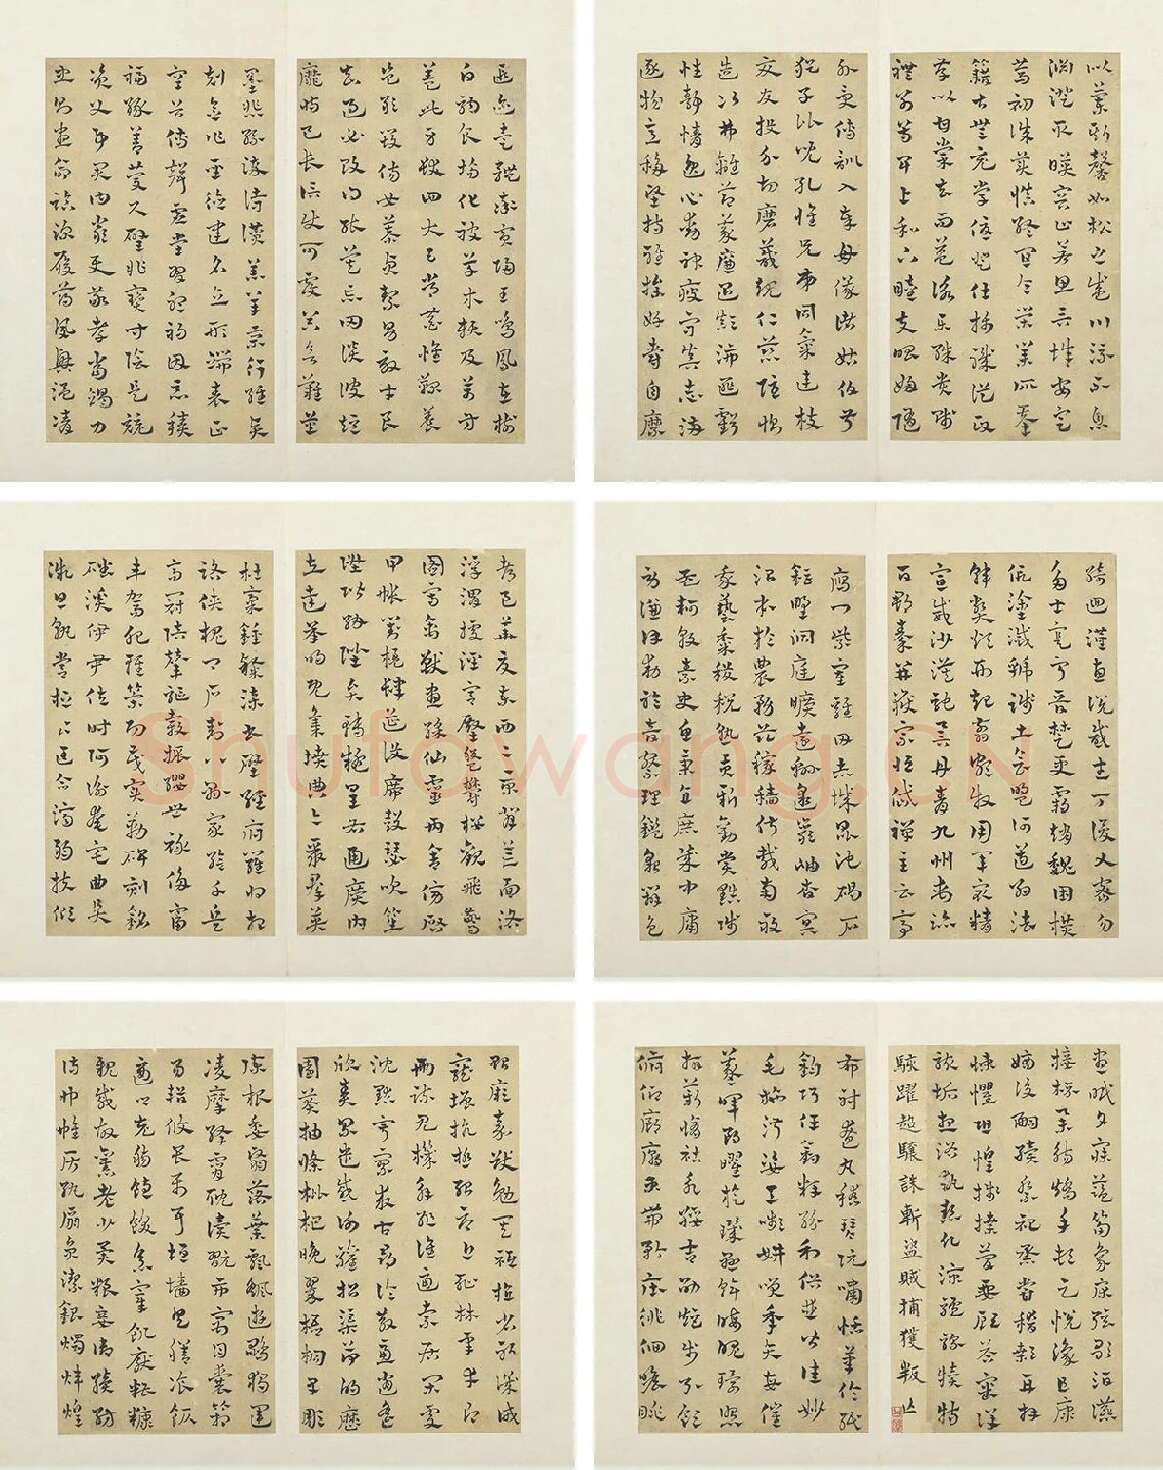 遐邇壹體率賓歸王鳴鳳在樹
白駒食場化被草木賴及萬方
蓋此身髮四大五常恭惟鞠養
豈敢毀傷女慕貞潔男效才良
知過必改得能莫忘罔談彼短
靡恃己長信使可覆器欲難量
墨悲絲染詩讚羔羊景行維賢
剋念作聖德建名立形端表正
空谷傳聲虛堂習聽禍因惡積
福緣善慶尺璧非寶寸陰是競
資父事君曰嚴與敬孝當竭力
忠則盡命臨深履薄夙興溫凊
似蘭斯馨如松之盛川流不息
淵澄取映容止若思言辭安定
篤初誠美慎終宜令榮業所基
籍甚無竟學優登仕攝職從政
存以甘棠去而益詠樂殊貴賤
禮別尊卑上和下睦夫唱婦隨
外受傅訓入奉母儀諸姑伯叔
猶子比兒孔懷兄弟同氣連枝
交友投分切磨箴規仁慈隱惻
造次弗離節義廉退顛沛匪虧
性靜情逸心動神疲守真志滿
逐物意移堅持雅操好爵自縻
都邑華夏東西二京背芒面洛
浮渭據涇宮殿盤鬱樓觀飛驚
圖寫禽獸畫彩仙靈丙舍傍啟
甲帳對楹肆筵設席鼓瑟吹笙
陞階納陛弁轉疑星右通廣內
左達承明既集墳典亦聚群英
杜稾鍾隸漆書壁經府羅將相
路俠槐卿戶封八縣家給千兵
高冠陪輦驅轂振纓世祿侈富
車駕肥輕策功茂實勒碑刻銘
磻溪伊尹佐時阿衡奄宅曲阜
微旦孰營桓公匡合濟弱扶傾
綺迴漢惠說感武丁俊乂密勿
多士寔寧晉楚更霸趙魏困橫
假塗滅虢踐土會盟何遵約法
韓弊煩刑起翦頗牧用軍最精
宣威沙漠馳譽丹青九州禹跡
百郡秦并嶽宗恆岱禪主云亭
雁門紫塞雞田赤城昆池碣石
鉅野洞庭曠遠綿邈巖岫杳冥
治本於農務茲稼穡俶載南畝
我藝黍稷稅熟貢新勸賞黜陟
孟軻敦素史魚秉直庶幾中庸
勞謙謹敕聆音察理鑑貌辨色
貽厥嘉猷勉其祗植省躬譏誡
寵增抗極殆辱近恥林皋幸即
兩疏見機解組誰逼索居閒處
沉默寂寥求古尋論散慮逍遙
欣奏累遣慼謝歡招渠荷的歷
園莽抽條枇杷晚翠梧桐早彫
陳根委翳落葉飄颻遊鵾獨運
凌摩絳霄耽讀翫市寓目囊箱
易輶攸畏屬耳垣牆具膳飡飯
適口充腸飽飫烹宰飢厭糟糠
親戚故舊老少異糧妾御績紡
侍巾帷房紈扇圓潔銀燭煒煌
晝眠夕寐藍筍象床弦歌酒讌
接杯舉觴矯手頓足悅豫且康
嫡後嗣續祭祀蒸嘗稽顙再拜
悚懼恐惶牋牒簡要顧答審詳
骸垢想浴執熱願涼驢騾犢特
駭躍超驤誅斬盜賊捕獲叛亡
布射遼丸嵇琴阮嘯恬筆倫紙
鈞巧任釣釋紛利俗並皆佳妙
毛施淑姿工顰妍笑年矢每催
羲暉朗曜琁璣懸斡晦魄環照
指薪修祜永綏吉劭矩步引領
俯仰廊廟束帶矜莊徘徊瞻眺
Shufawang.CN